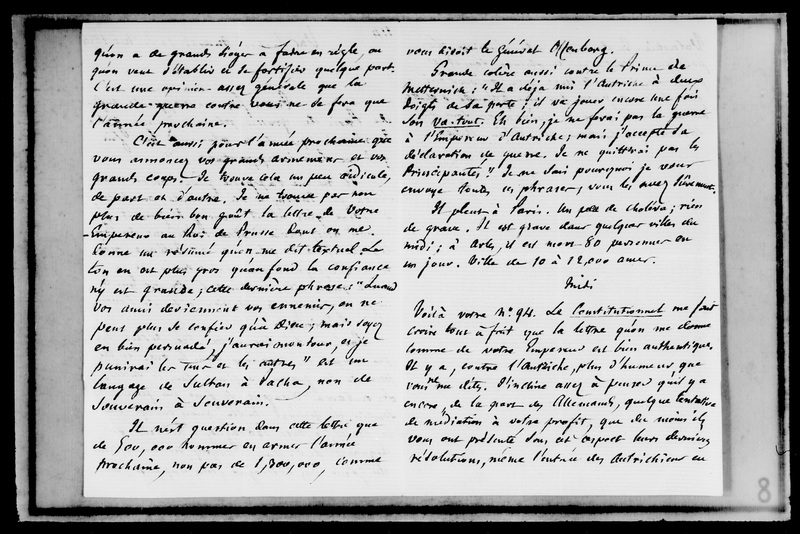 qu'on a de grands dioger a faire en règle, ou
qu'on veut s'établir et se fortifier quelque part.
C'est une opinion assez générale que la
grande guerre contre vous ne se fera que
l'année prochaine.
C'est aussi pour l'année prochaine que
vous annoncez vos grands armemens et vos
grands coups. Je trouve cela un peu ridicule,
de part et d'autre. Je ne trouve pas non
plus de bien bon goût la lettre de votre
Empereur au Roi de Prusse dont on me
donne un résumé qu'on me dit textuel. Le
ton en est plus gros quan fond la confiance
n'y est grande; cette dernière phrase: "Quand
vos amis deviennent vos ennemis, on ne
peut plus se confier qu'à Dieu; mais soyez
en bien persuadé, j'aurai mon tour, et je
punirai les uns et les autres" est un
langage de Sultan à Pacha, non de
Souverain à Souverain.
Il n'est question dans cette lettre que
de 500,000 hommes en armes l'année
prochaine, non pas de 1,800,000, comme
vous disoit le général Offenberg.
Grande colère aussi contre le Prince de
Metternich: "Il a déjà mis l'Autriche à deux
doigts de sa perte; il va jouer encore une fois
son va-tout. Eh bien, je ne ferai pas la guerre
à l'Empereur d'Autriche; mais j'accepte sa
déclaration de guerre. Je ne quitterai pas les
Principautés." Je ne sais pourquoi je vous
envoye toutes ces phrases, vous les avez sûrement.
Il pleut à Paris. Un peu de choléra; rien
de grave. Il est grave dans quelques villes du
midi; à Arles, il est mort 80 personnes en
un jour. Ville de 10 à 12,000 ames.
Midi
Voilà votre N° 94. Le Constitutionnel me fait
croire tout à fait que la lettre qu'on me donne
comme de votre Empereur est bien authentique.
Il y a, contre l'Autriche, plus d'humeur que
vous ne dites. J'incline assez à penser qu'il y a
encore, de la part des Allemands, quelque tentative
de médiation à votre profit, que du moins ils
vous ont présenté sous cet aspect leurs dernières
résolutions, même l'entrée des Autrichiens en
8